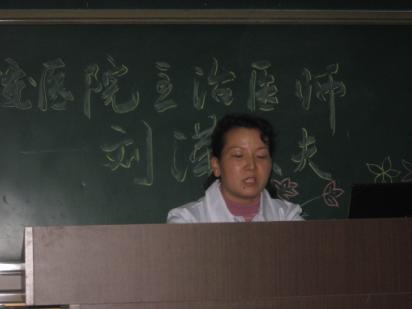 医院主治医师
刘 夫